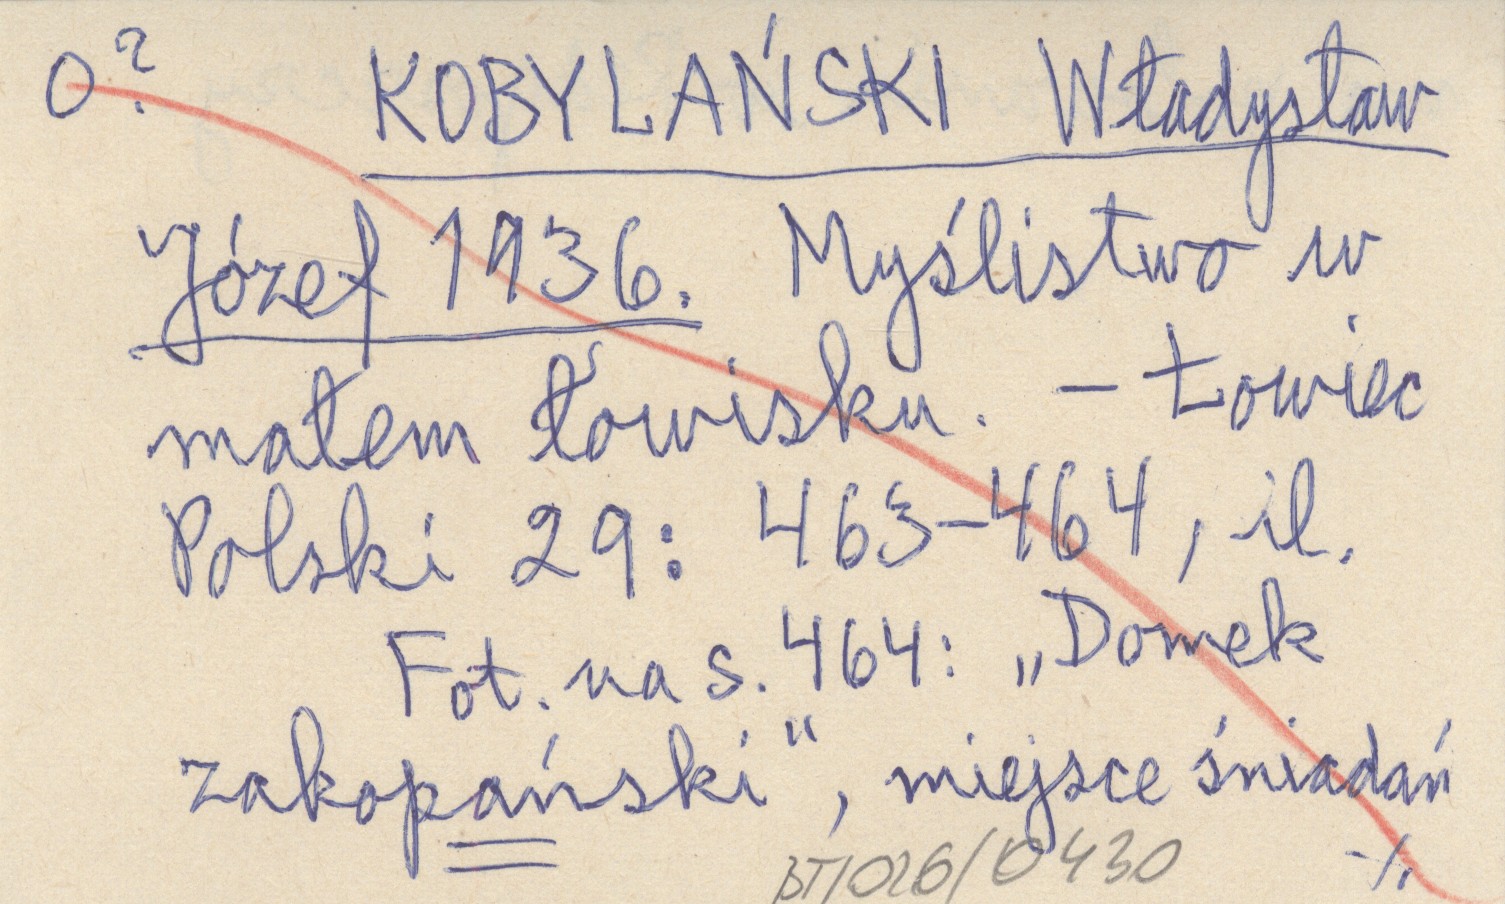 0? KOBYLAŃSKI Władysław
Józef 1936. Myślistwo w
małem łowisku. – Łowiec
Polski 29: 463–464, il.
Fot. na s. 464: „Domek
zakopański", miejsce śniadań
BT/026/0430
-/.